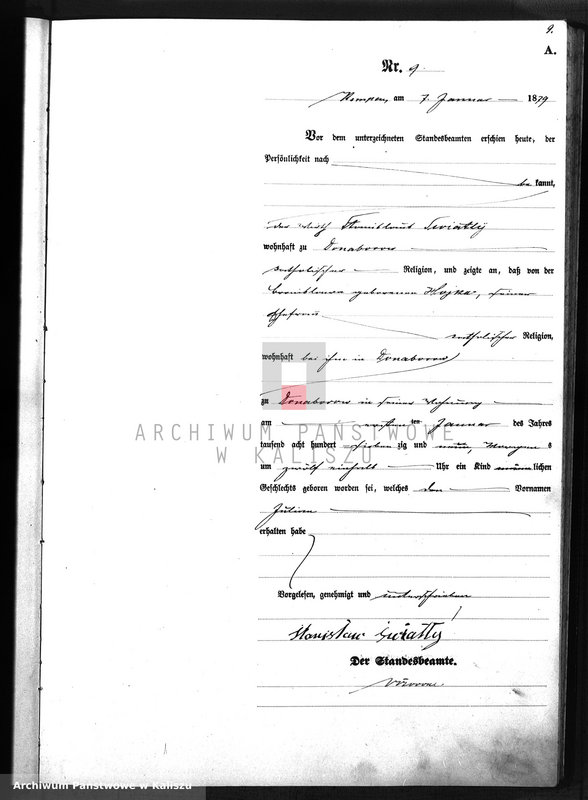 9.
A.
Nr. 9.
Kempen, am 7. Januar 1879
Vor dem unterzeichneten Standesbeamten erschien heute, der
Persönlichkeit nach
be kannt,
der Wirth Stanislaus Swiatły
wohnhaft zu Donaborow
katholischer Religion, und zeigte an, daß von der
geborenen, seiner
Ehefrau
katholischer Religion,
wohnhaft bei ihm in Donaborow
zu Donaborow in seiner Wohnung
am ersten ten Januar des Jahres
tausend acht hundert sieben zig und neun, Morgens
um zwölf einhalb Uhr ein Kind männlichen
Geschlechts geboren worden sei, welches den Vornamen
Julian
erhalten habe
Vorgelesen, genehmigt und unterschrieben
Stanisław Światły
Der Standesbeamte.
ARCHIWUM PAŃSTWOWE
W KALISZU
Archiwum Państwowe w Kaliszu